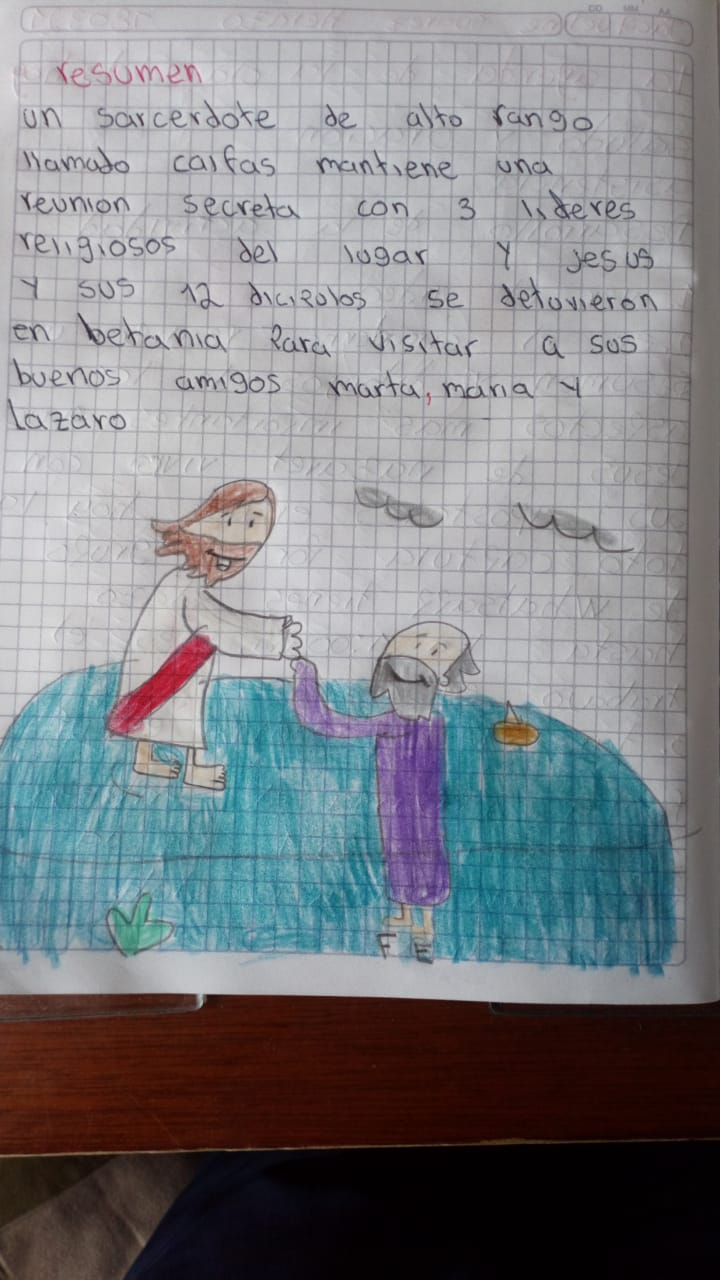 resumen
un sarcerdote de alto rango
llamado caifas mantiene una
reunion secreta con 3 lideres
religiosos del lugar y jesus
y sus 12 dicipulos se detuvieron
en betania para visitar a sus
buenos amigos marta, maria y
lazaro
F E